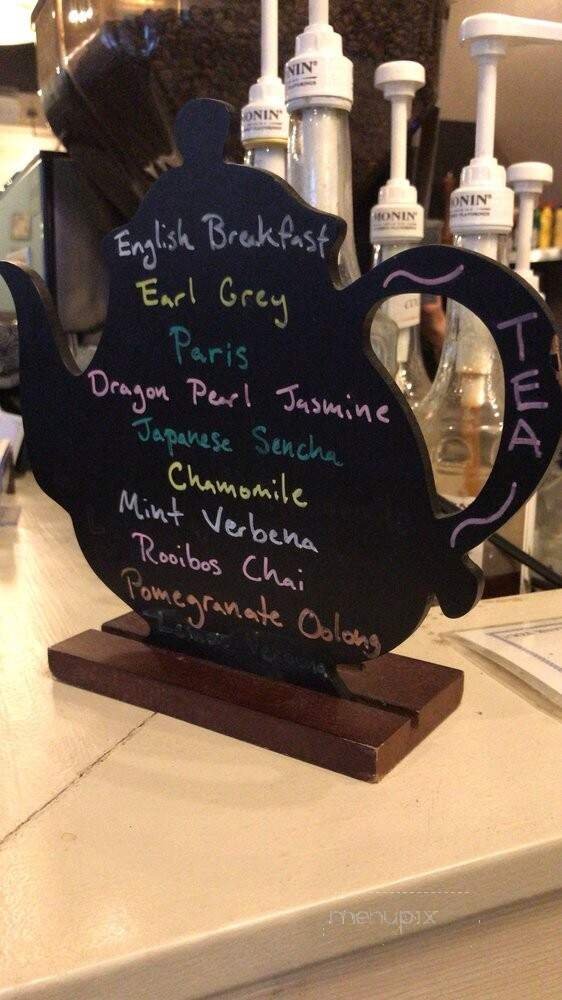 MONIN
MONIN
MONIN
MONIN
English Breakfast
Earl Grey
Paris
Dragon Pearl Jasmine
Japanese Sencha
Chamomile
Mint Verbena
Rooibos Chai
Pomegranate Oolong
TEA
menupix